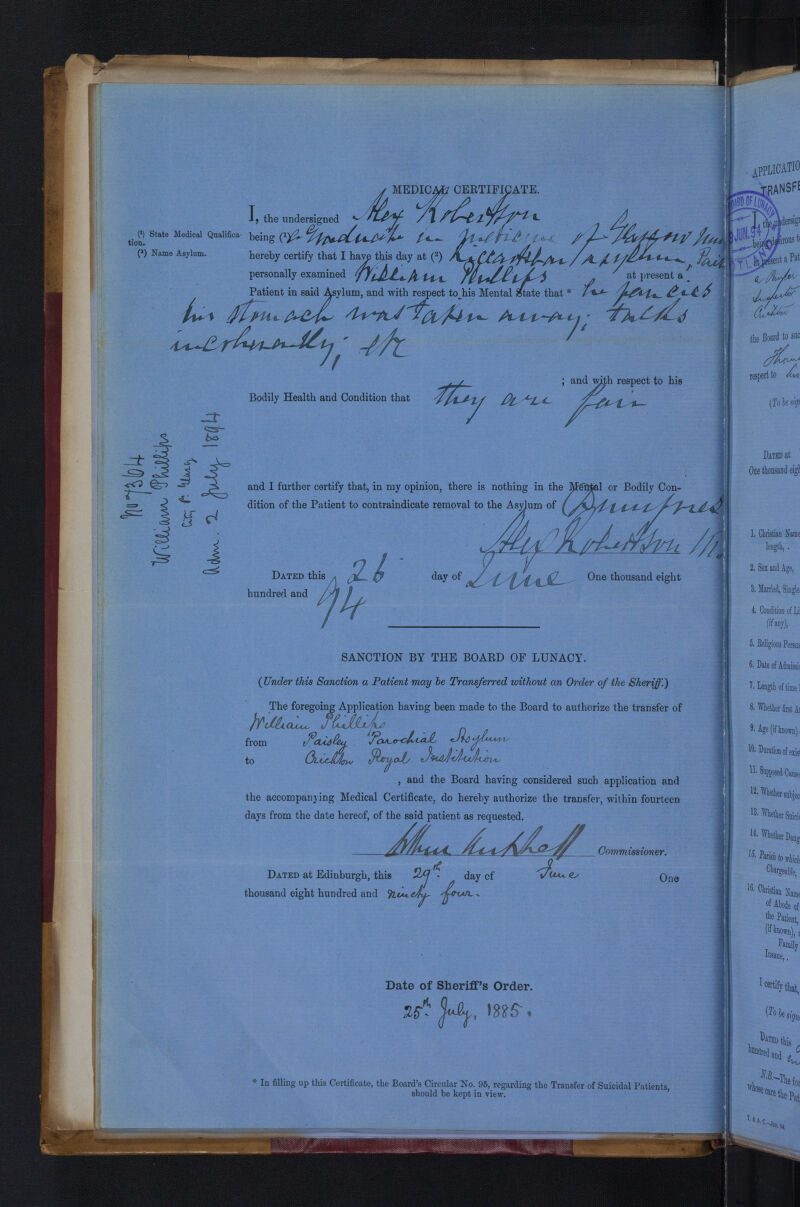 MEDICAL CERTIFICATE.
I, the undersigned Alex Robertson
(¹) State Medical Qualifica-
tion.
being (¹) a Graduate in medicine of Glasgow
(²) Name Asylum.
hereby certify that I have this day at (²) Asylum,
personally examined William Phillips at present a
Patient in said Asylum, and with respect to his Mental State that * he fancies
his stomach was taken away; talks
incoherently; etc
; and with respect to his
Bodily Health and Condition that they are fair
No 7364
William Phillips
City P.
Adm. 2 July 1894
and I further certify that, in my opinion, there is nothing in the Mental or Bodily Con-
dition of the Patient to contraindicate removal to the Asylum of Dumfries
Alex Robertson
DATED this 26 day of June One thousand eight
hundred and 94
SANCTION BY THE BOARD OF LUNACY.
(Under this Sanction a Patient may be Transferred without an Order of the Sheriff.)
The foregoing Application having been made to the Board to authorize the transfer of
William Phillips
from Paisley Parochial Asylum
to Crichton Royal Institution
, and the Board having considered such application and
the accompanying Medical Certificate, do hereby authorize the transfer, within fourteen
days from the date hereof, of the said patient as requested.
Arthur Mitchell Commissioner.
DATED at Edinburgh, this 29th. day of June One
thousand eight hundred and ninety four.
Date of Sheriff's Order.
25th. July, 1885.
* In filling up this Certificate, the Board's Circular No. 95, regarding the Transfer of Suicidal Patients,
should be kept in view.
APPLICATIO
TRANSFE
the Board to
respect to
(To be sig
DATED at
One thousand eigh
1. Christian Name
length, .
2. Sex and Age,
3. Married, Single
4. Condition of Li
(if any),
5. Religious Persua
6. Date of Admissi
7. Length of time
8. Whether first At
9. Age (if known)
10. Duration of exis
11. Supposed Cause
12. Whether subjec
13. Whether Suici
14. Whether Dang
15. Parish to which
Chargeable,
16. Christian Name
of Abode of
the Patient,
(if known),
Family
Insane, .
I certify that,
(To be signe
DATED this
hundred and
N.B.—The for
whose care the Pat